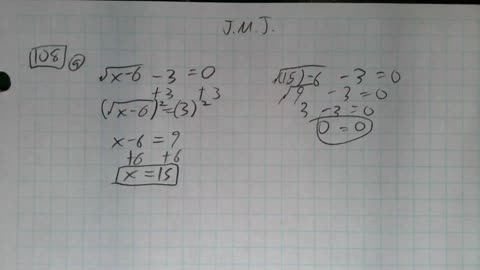 J.M.J.
108 a
√x-6 - 3 = 0
+3 +3
(√x-6)² = (3)²
x-6 = 9
+6 +6
x = 15
√(15)-6 - 3 = 0
√9 - 3 = 0
3 - 3 = 0
0 = 0